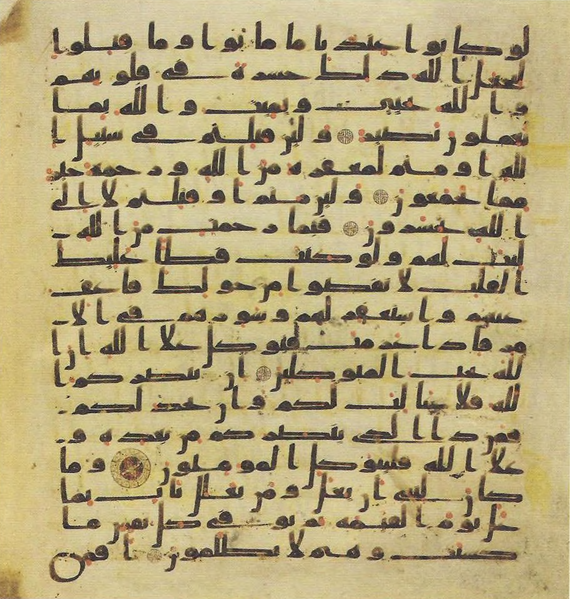 لو كانوا عندنا ما ماتوا وما قتلوا
ليجعل الله ذلك حسرة في قلوبهم
والله يحيي ويميت والله بما
تعملون بصير ولئن قتلتم في سبيل ا
لله او متم لمغفرة من الله ورحمة خير
مما يجمعون ولئن متم او قتلتم لالى
الله تحشرون فبما رحمة من الله
لنت لهم ولو كنت فظا غليظ
القلب لانفضوا من حولك فاعف
عنهم واستغفر لهم وشاورهم في الا
مر فاذا عزمت فتوكل على الله ان ا
لله يحب المتوكلين ان ينصركم ا
لله فلا غالب لكم وان يخذلكم
فمن ذا الذي ينصركم من بعده و
على الله فليتوكل المومنون وما
كان لنبي ان يغل ومن يغلل يات بما
غل يوم القيمة ثم توفى كل نفس ما
كسبت وهم لا يظلمون افمن